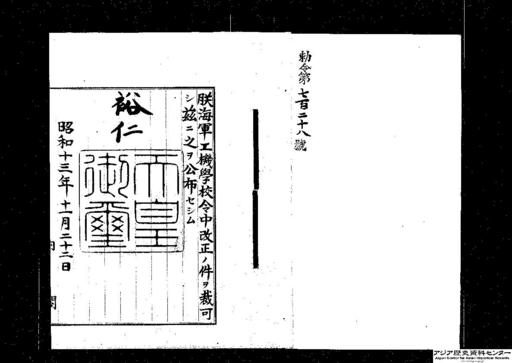 勅令第七百二十八號
朕海軍工機學校令中改正ノ件ヲ裁可
シ茲ニ之ヲ公布セシム
裕仁
天皇御璽
昭和十三年十一月二十二日
アジア歴史資料センター
Japan Center for Asian Historical Records